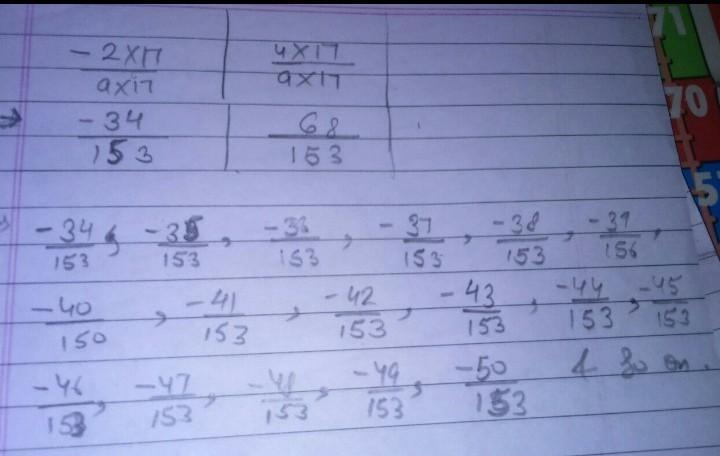 -2×17/9×17 | 4×17/9×17
→ -34/153 | 68/153
→ -34/153, -35/153, -36/153, -37/153, -38/153, -39/156,
-40/150, -41/153, -42/153, -43/153, -44/153, -45/153
-46/153, -47/153, -48/153, -49/153, -50/153 & so on.
71
70